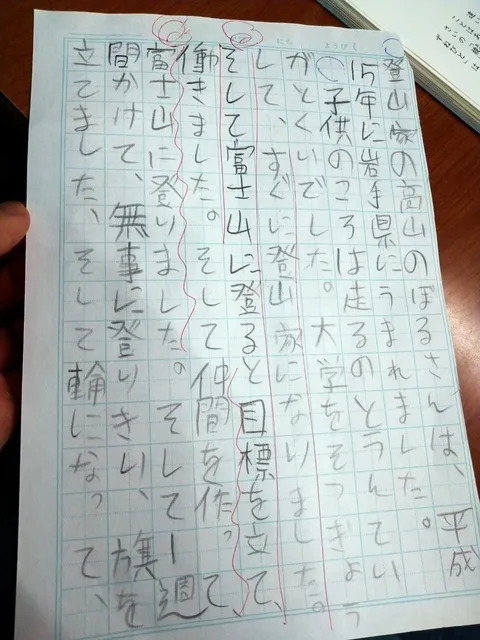 登山家の高山のぼるさんは、平成
15年に岩手県にうまれました。
子供のころは走るのとうんてい
がとくいでした。大学をそつぎょう
して、すぐに登山家になりました。
そして富士山に登ると目標を立て、
働きました。そして仲間を作って、
富士山に登りました。そして一週
間かけて、無事に登りきり、旗を
立てました、そして輪になって、
にち ようび